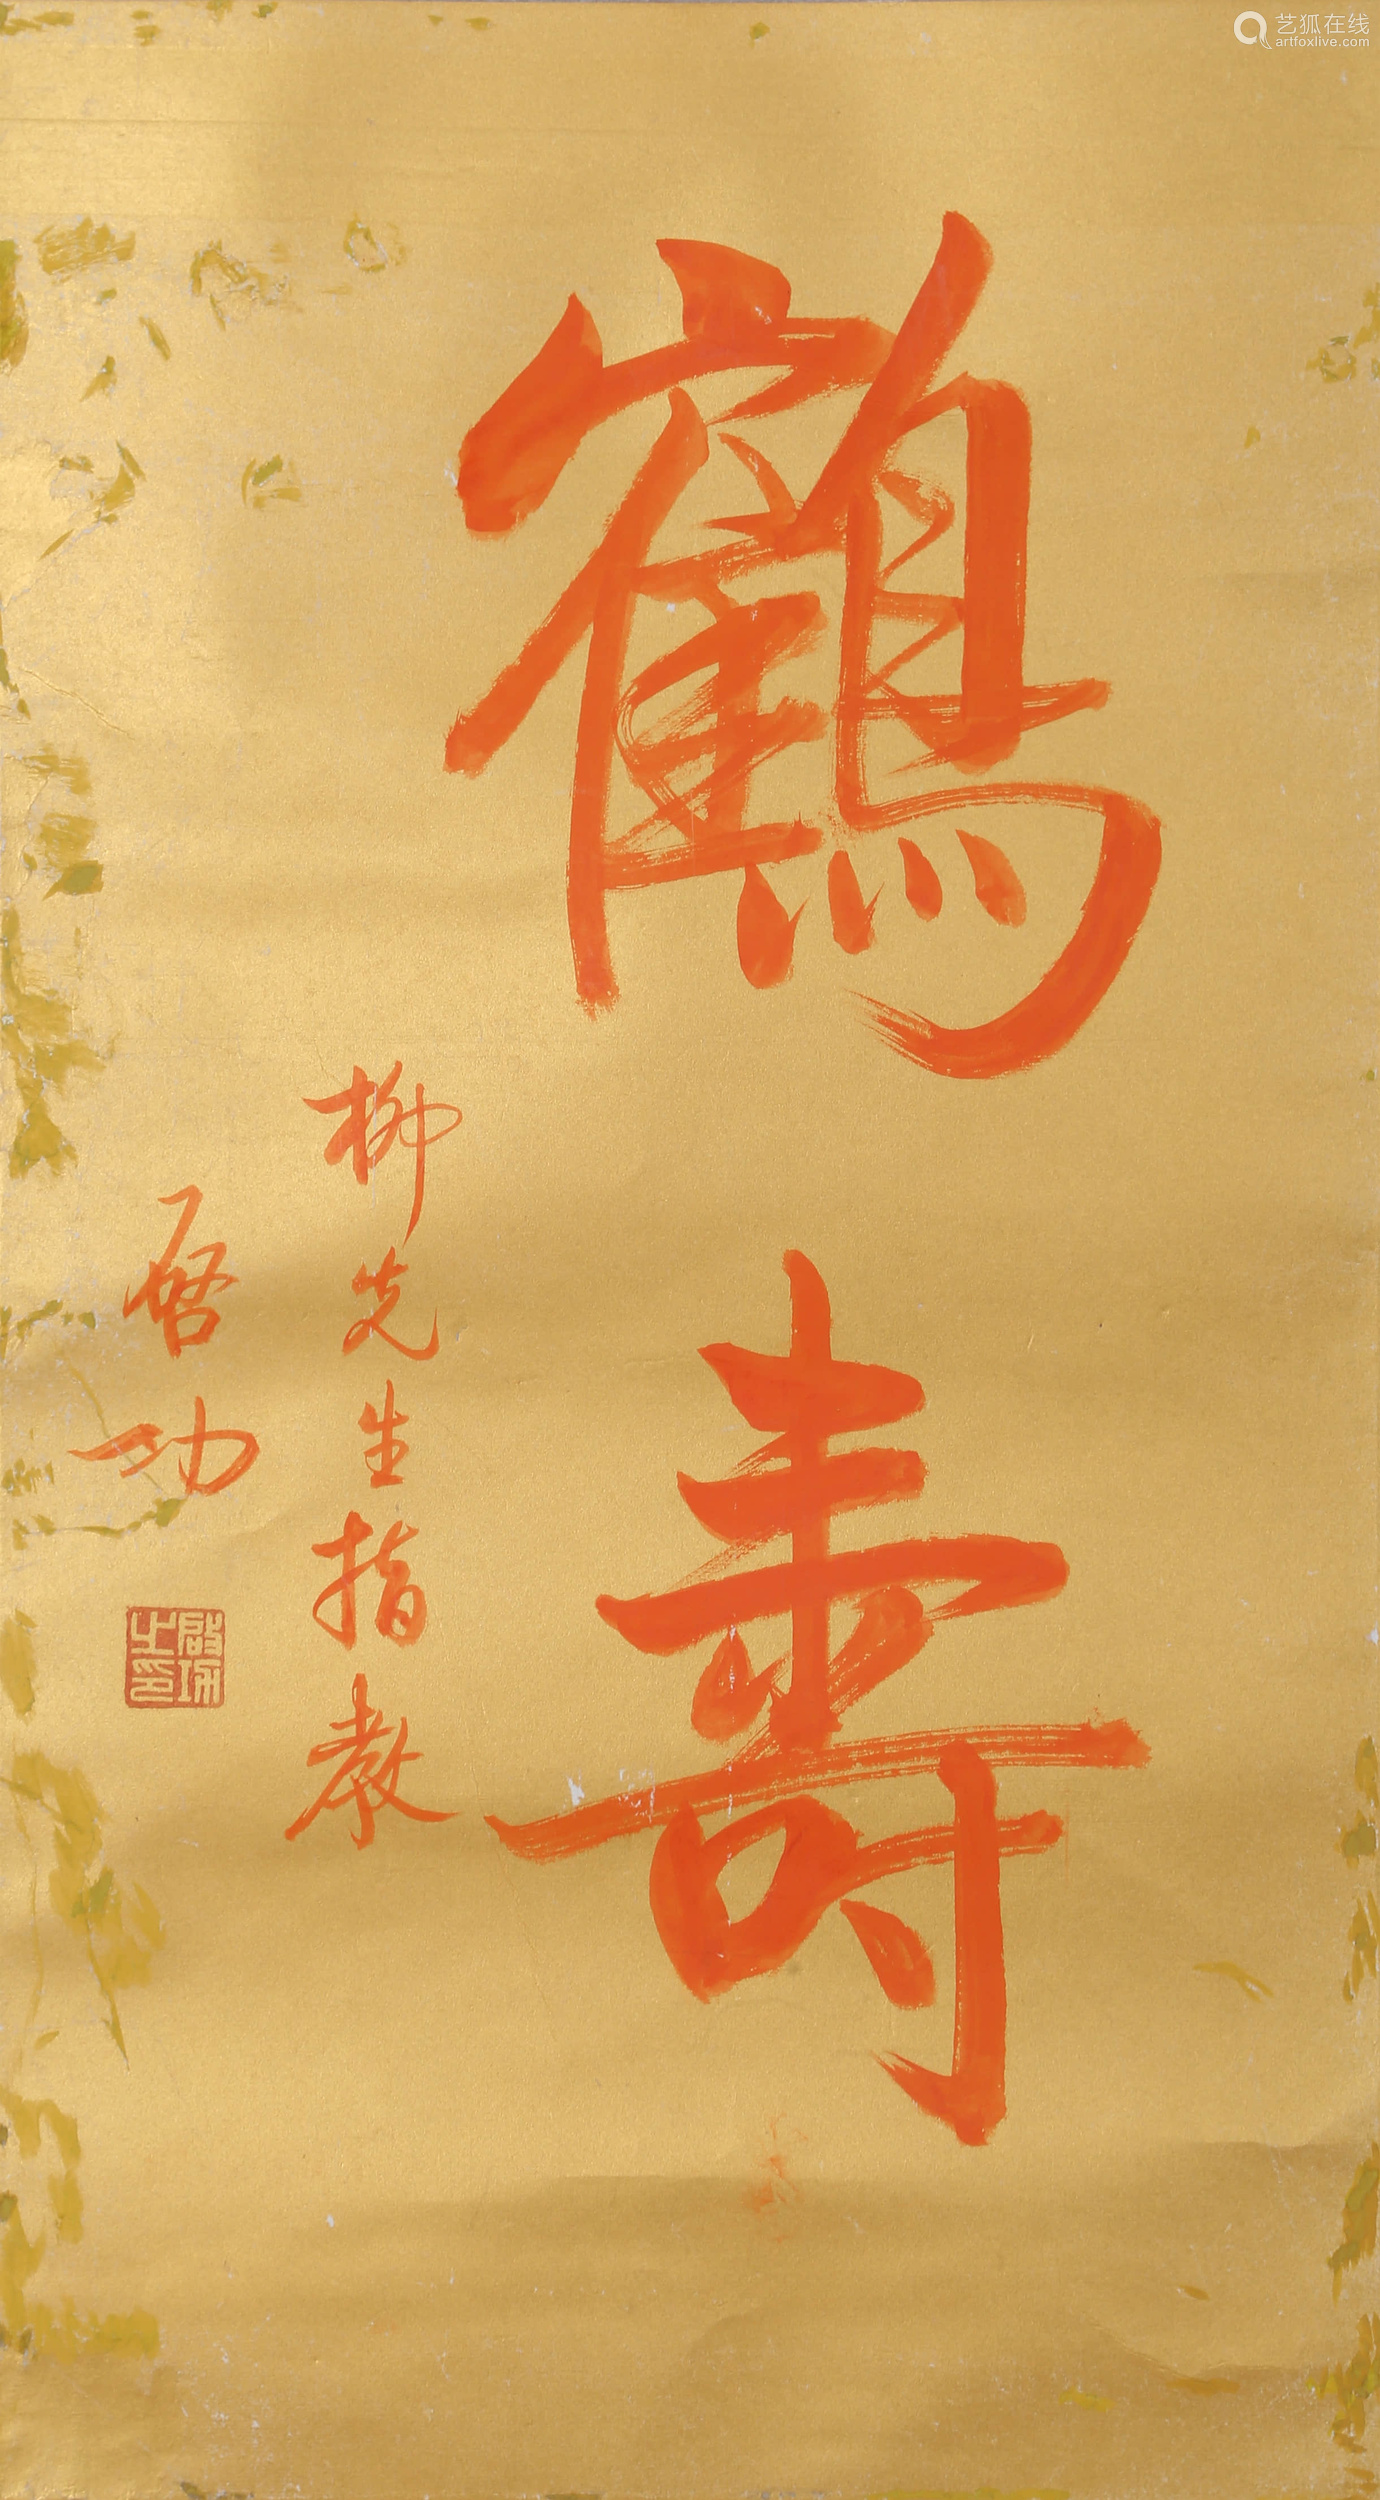 艺狐在线
artfoxlive.com
鶴壽
柳先生指教
启功
啟功之印